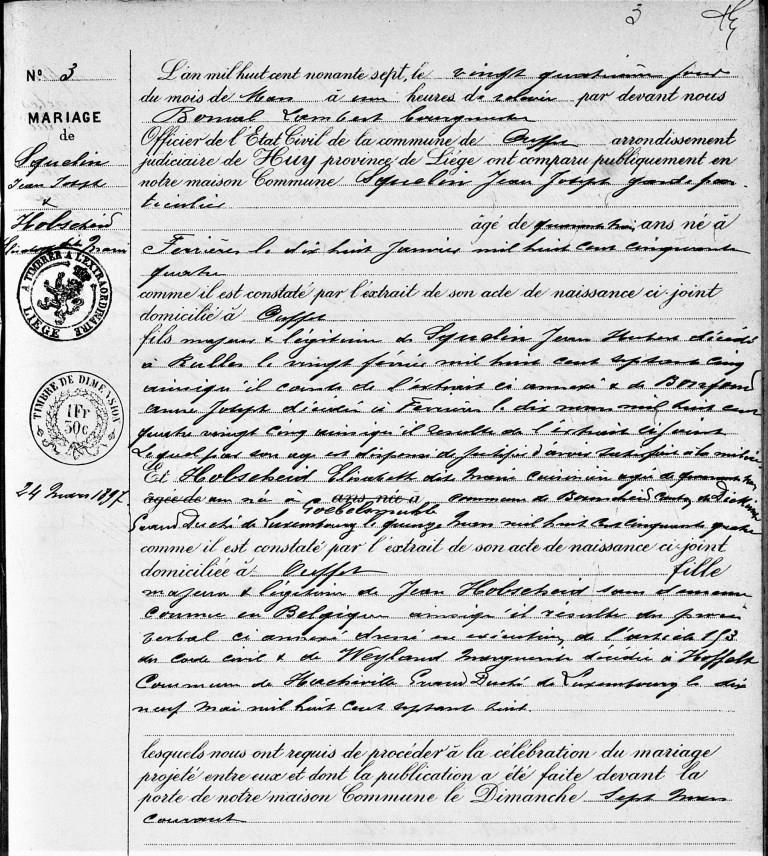 3
N° 3
MARIAGE
de
Squelin
Jean Joseph
&
Hobscheid
Elisabeth dite Marie
A TIMBRER A L'EXTRAORDINAIRE
LIEGE
TIMBRE DE DIMENSION
1 Fr
30c
24 Mars 1897
L'an mil huit cent nonante sept, le vingt quatrième jour
du mois de Mars à une heures de relevée par devant nous
Bomal Lambert bourgmestre
Officier de l'Etat Civil de la commune de Ouffet arrondissement
judiciaire de Huy province de Liège ont comparu publiquement en
notre maison Commune Squelin Jean Joseph garde par-
ticulier
âgé de quarante trois ans né à
Ferrières le dix huit Janvier mil huit cent cinquante
quatre
comme il est constaté par l'extrait de son acte de naissance ci-joint
domicilié à Ouffet
fils majeur & légitime de Squelin Jean Hubert décédé
à le vingt février mil huit cent septante cinq
ainsi qu'il conste de l'extrait ci annexé & de
Joseph décédée à Ferrières le dix mars mil huit cent
quatre vingt cinq ainsi qu'il résulte de l'extrait ci joint
Lequel par son age est dispensé de justifier d'avoir satisfait à la milice
Et Hobscheid Elisabeth dite Marie cuisinière agée de quarante trois
âgée de ans née à commune de
Grand Duché de Luxembourg le quinze Mars mil huit cent cinquante quatre
comme il est constaté par l'extrait de son acte de naissance ci-joint
domiciliée à Ouffet fille
majeure & légitime de Jean Hobscheid sans demeure
connue en Belgique ainsi qu'il résulte du procès
verbal ci annexé dressé en exécution de l'article 153
du code civil & de Weyland Marguerite décédée à Hoffelt
Commune de Hachiville Grand Duché de Luxembourg le dix
neuf mai mil huit cent septante huit.
lesquels nous ont requis de procéder à la célébration du mariage
projeté entre eux et dont la publication a été faite devant la
porte de notre maison Commune le Dimanche Sept Mars
courant